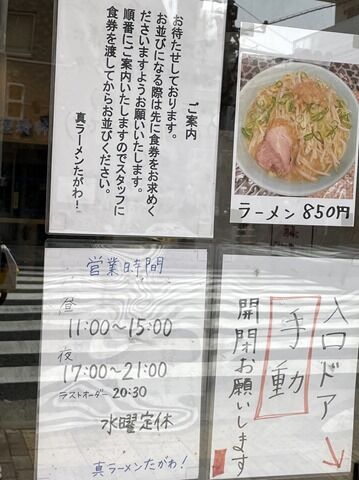 ご案内
お待たせしております。
お並びになる際は先に食券をお求めく
ださいますようお願いいたします。
順番にご案内いたしますのでスタッフに
食券を渡してからお並びください。
真ラーメンたがわ!
ラーメン 850円
営業時間
昼
11:00~15:00
夜
17:00~21:00
ラストオーダー 20:30
水曜定休
真ラーメンたがわ!
入口ドア
手動
開閉お願いします